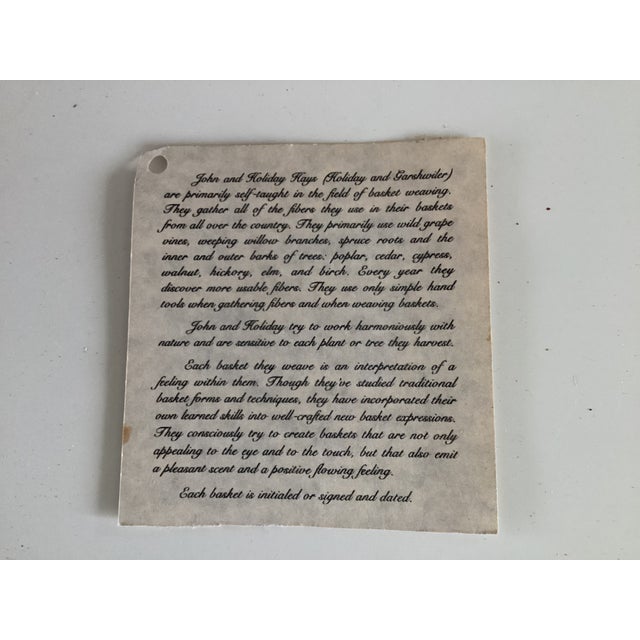 John and Holiday Hays (Holiday and Garshwiler)
are primarily self-taught in the field of basket weaving.
They gather all of the fibers they use in their baskets
from all over the country. They primarily use wild grape
vines, weeping willow branches, spruce roots and the
inner and outer barks of trees: poplar, cedar, cypress,
walnut, hickory, elm, and birch. Every year they
discover more usable fibers. They use only simple hand
tools when gathering fibers and when weaving baskets.
John and Holiday try to work harmoniously with
nature and are sensitive to each plant or tree they harvest.
Each basket they weave is an interpretation of a
feeling within them. Though they've studied traditional
basket forms and techniques, they have incorporated their
own learned skills into well-crafted new basket expressions.
They consciously try to create baskets that are not only
appealing to the eye and to the touch, but that also emit
a pleasant scent and a positive flowing feeling.
Each basket is initialed or signed and dated.